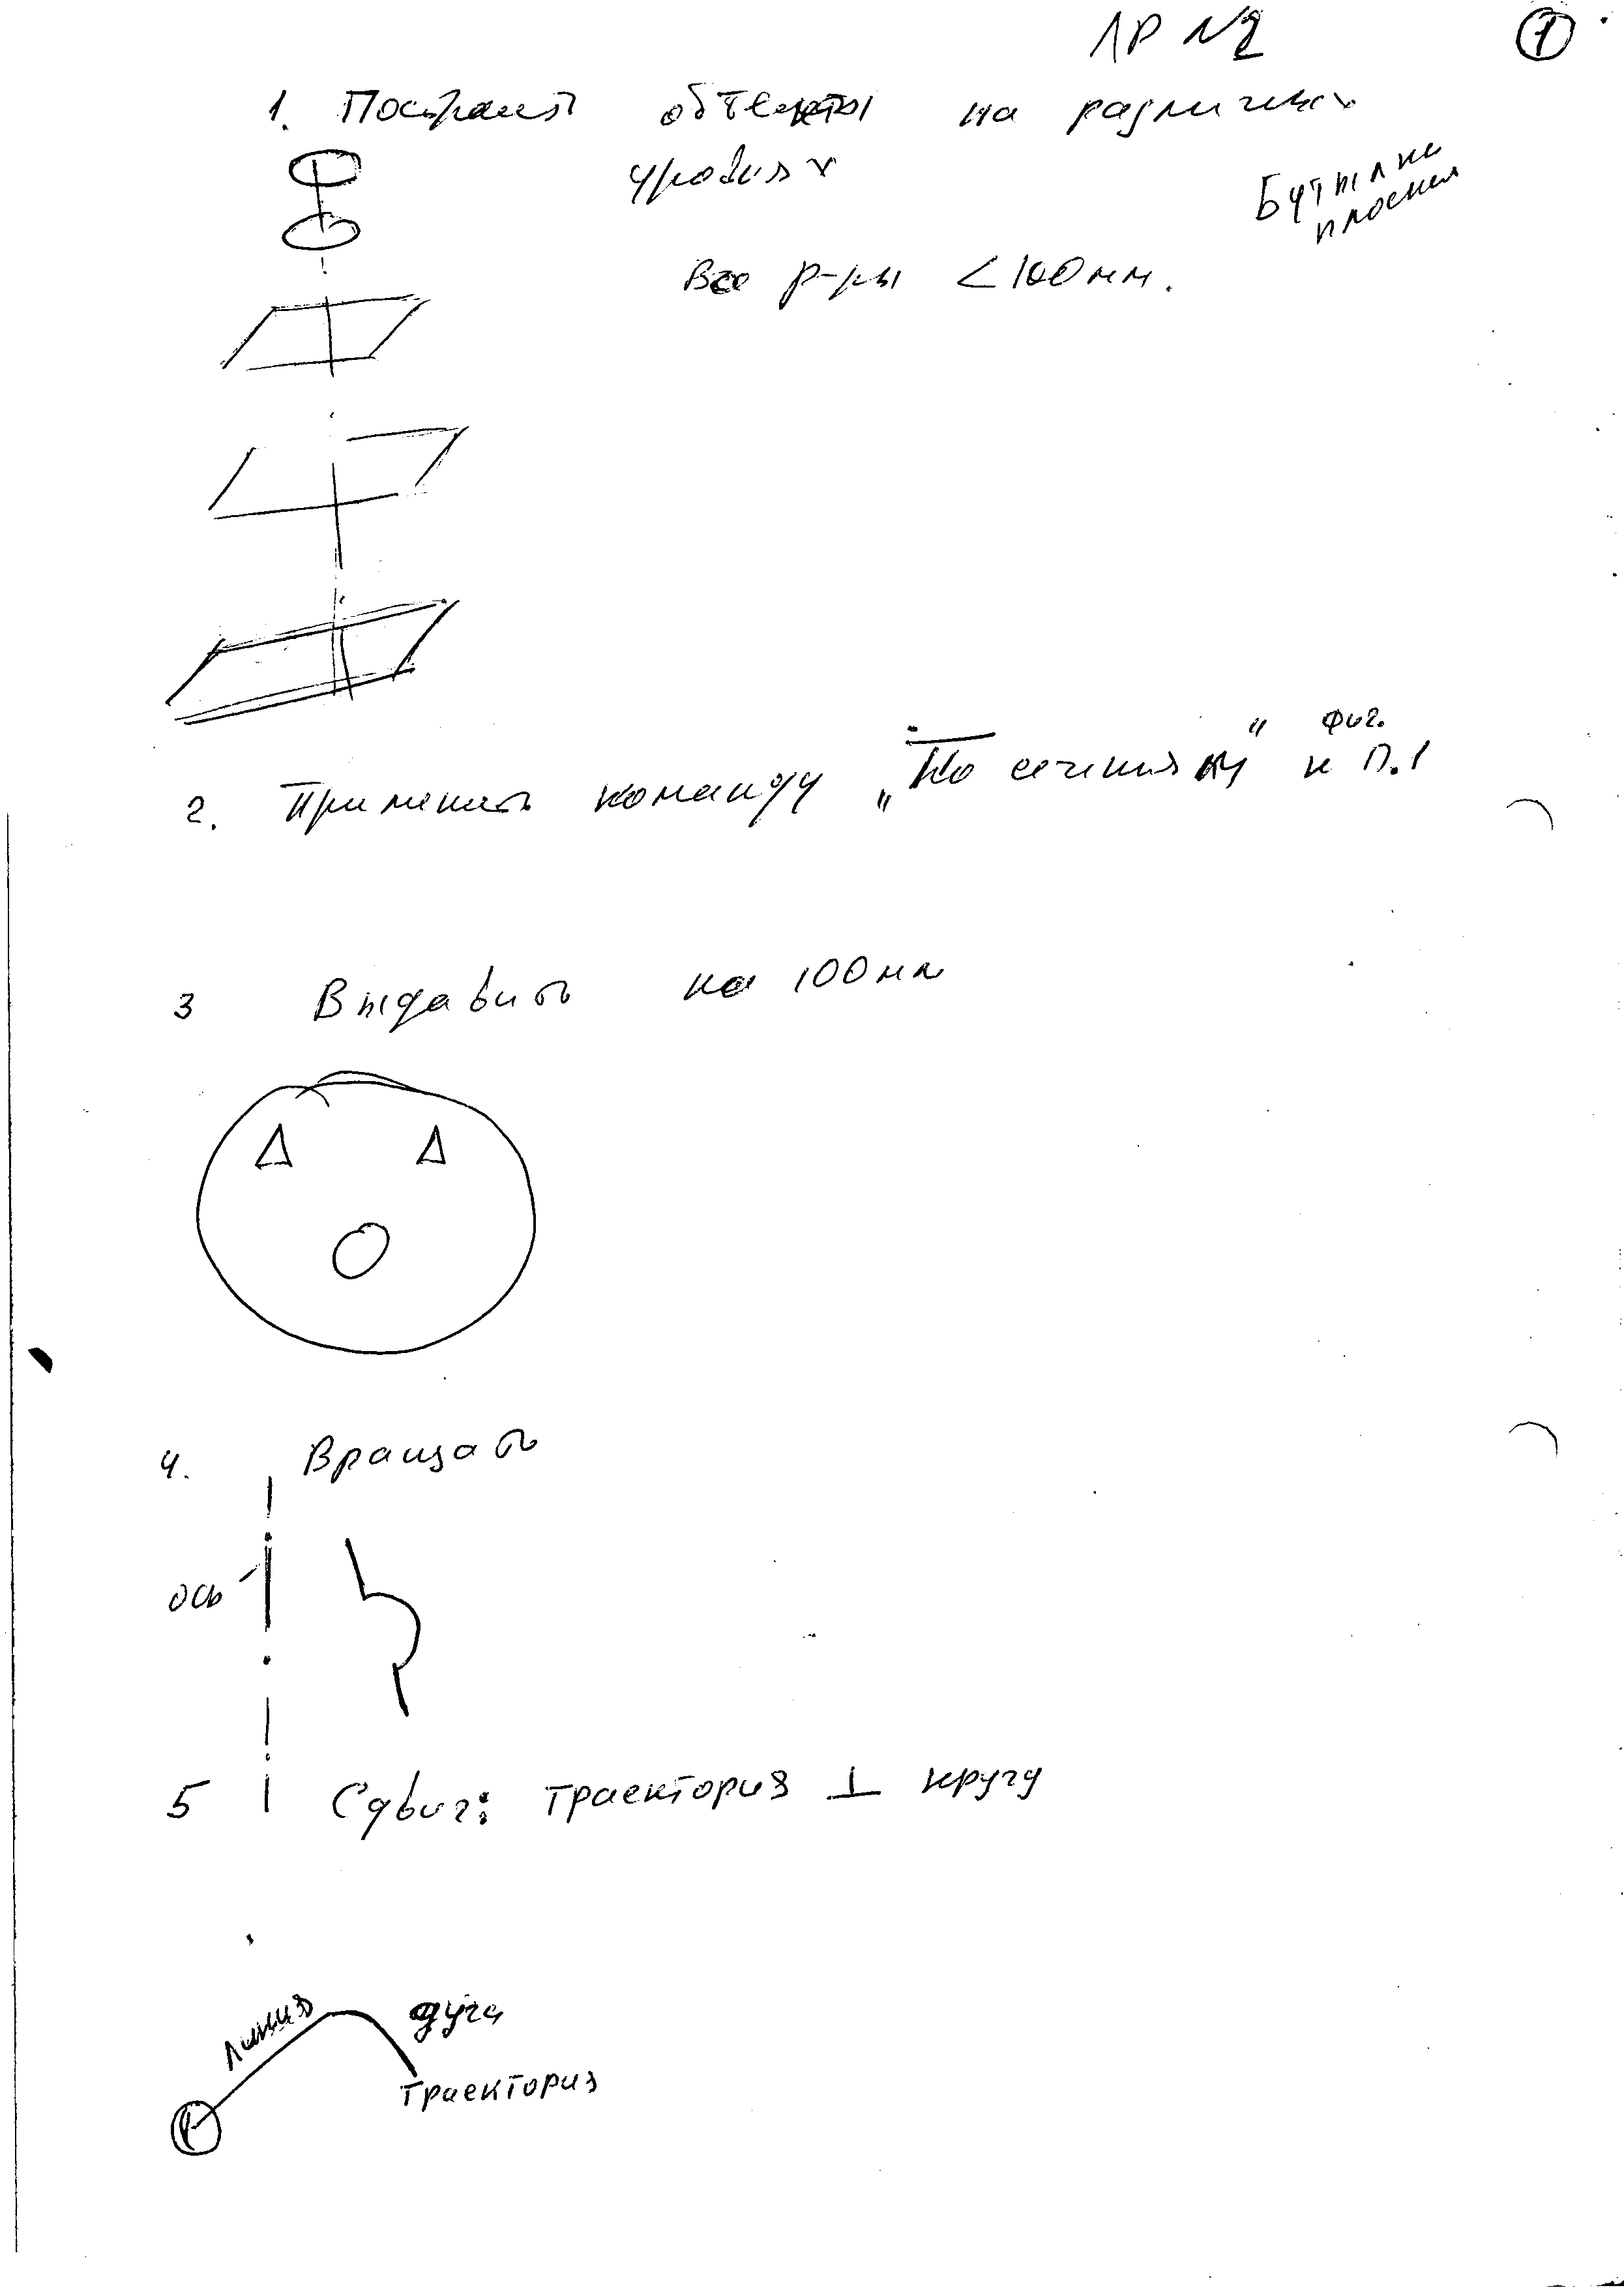 ЛР №2
1
1. Построить объекты на различных
уровнях
Бутылка
плоская
Все р-ры < 100 мм.
2. Применить команду „По сечениям" к фиг. п.1
3 Выдавить на 100 мм
4. Вращать
ось
5 Сдвиг: траектория ⊥ кругу
линия
дуга
траектория